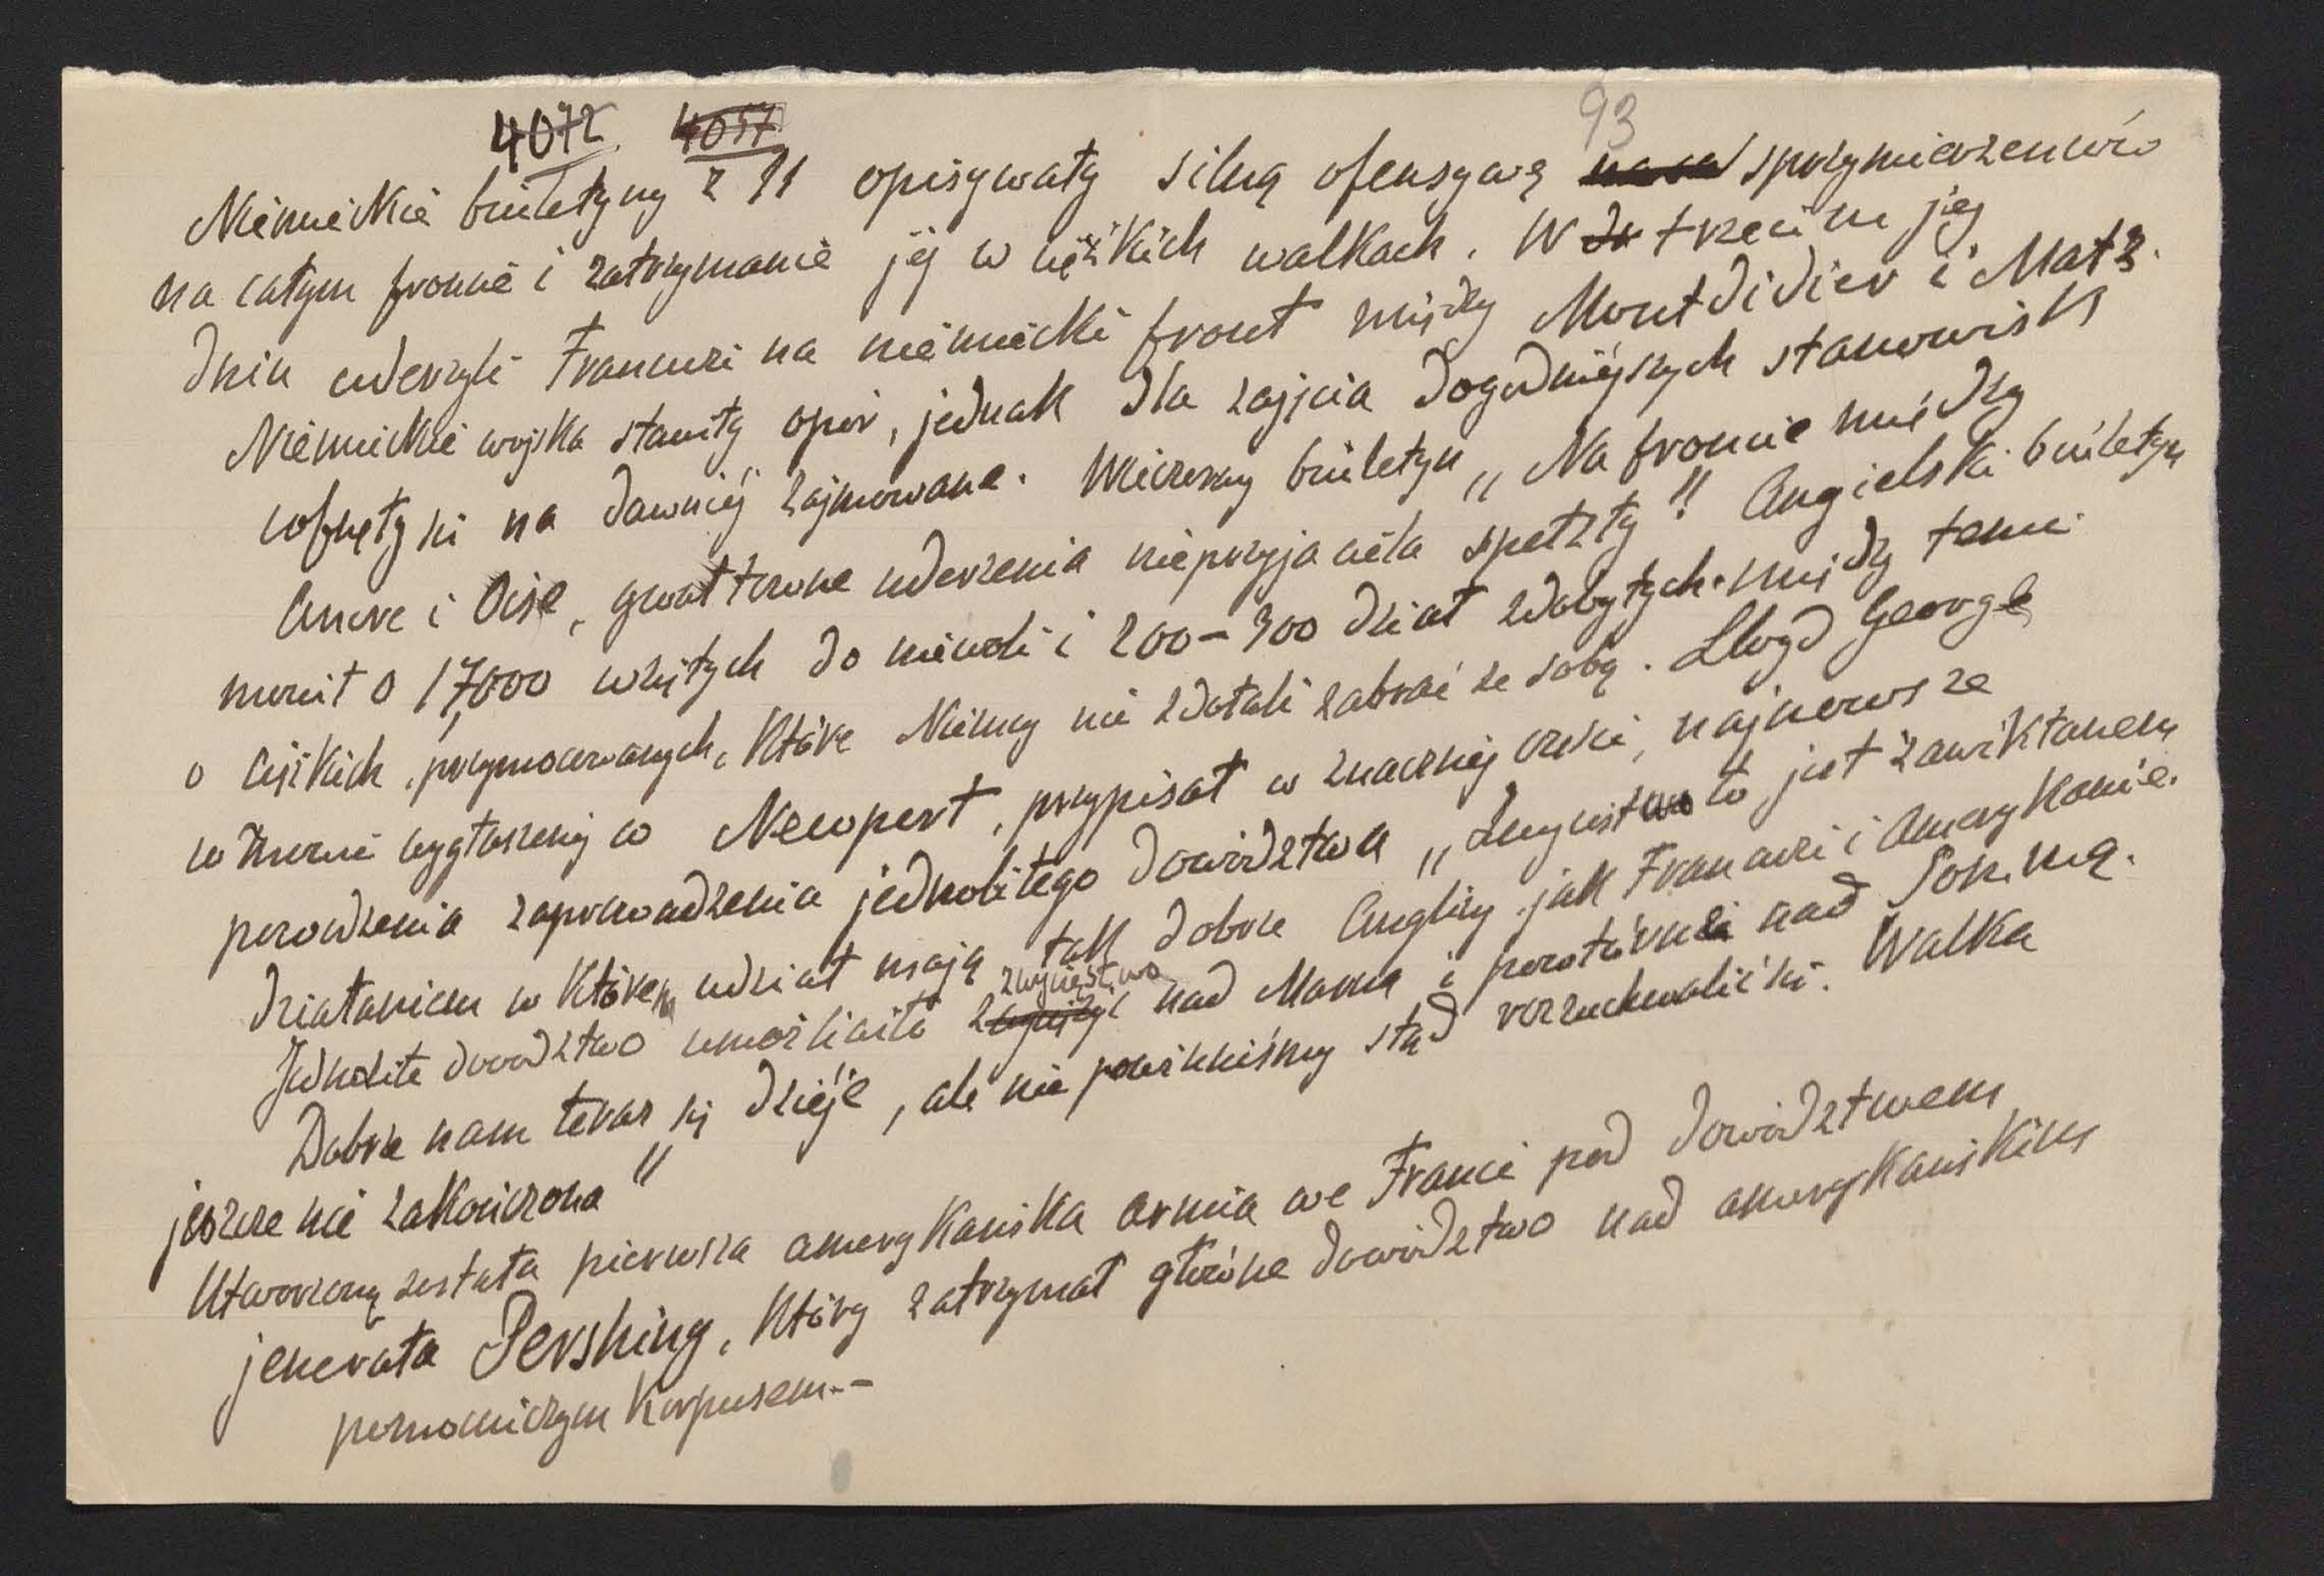 4072. 4057
93
Niemieckie biuletyny z 11 opisywały silną ofensywę sprzymierzeńców
na całym froncie i zatrzymanie jéj w ciężkich walkach. W trzecim jéj
dniu uderzyli Francuzi na niemiecki front między Montdidier i Matz.
Niemieckie wojska stawiły opór, jednak dla zajęcia dogodniéjszych stanowisk
cofnęły się na dawniéj zajmowane. Wieczorny biuletyn „Na froncie między
Ancre i Oise, gwałtowne uderzenia nieprzyjaciela spełzły" Angielski biuletyn
mówił o 17,000 wziętych do niewoli i 200-300 dział zdobytych. między temi
o ciężkich, przymocowanych, które Niemcy nie zdołali zabrać ze sobą. Lloyd George
w mowie wygłoszonéj w Newport, przypisał w znacznéj części, najnowsze
powodzenia zaprowadzenia jednolitego dowództwa „Zwycięstwo to jest zawikłanem
działaniem w którem udział mają tak dobrze Anglicy jak Francuzi i Amerykanie.
Jednolite dowództwo umożliwiło zwycięstwo nad Marną i powtórnie nad Sommą.
Dobrze nam teraz się dzieje, ale nie powinniśmy stąd rozzuchwalić się. Walka
jeszcze nie zakończona"
Utworzoną została pierwsza amerykańska armia we Francie pod dowództwem
jenerała Pershing, który zatrzymał główne dowództwo nad amerykańskim
pomocniczym Korpusem.-